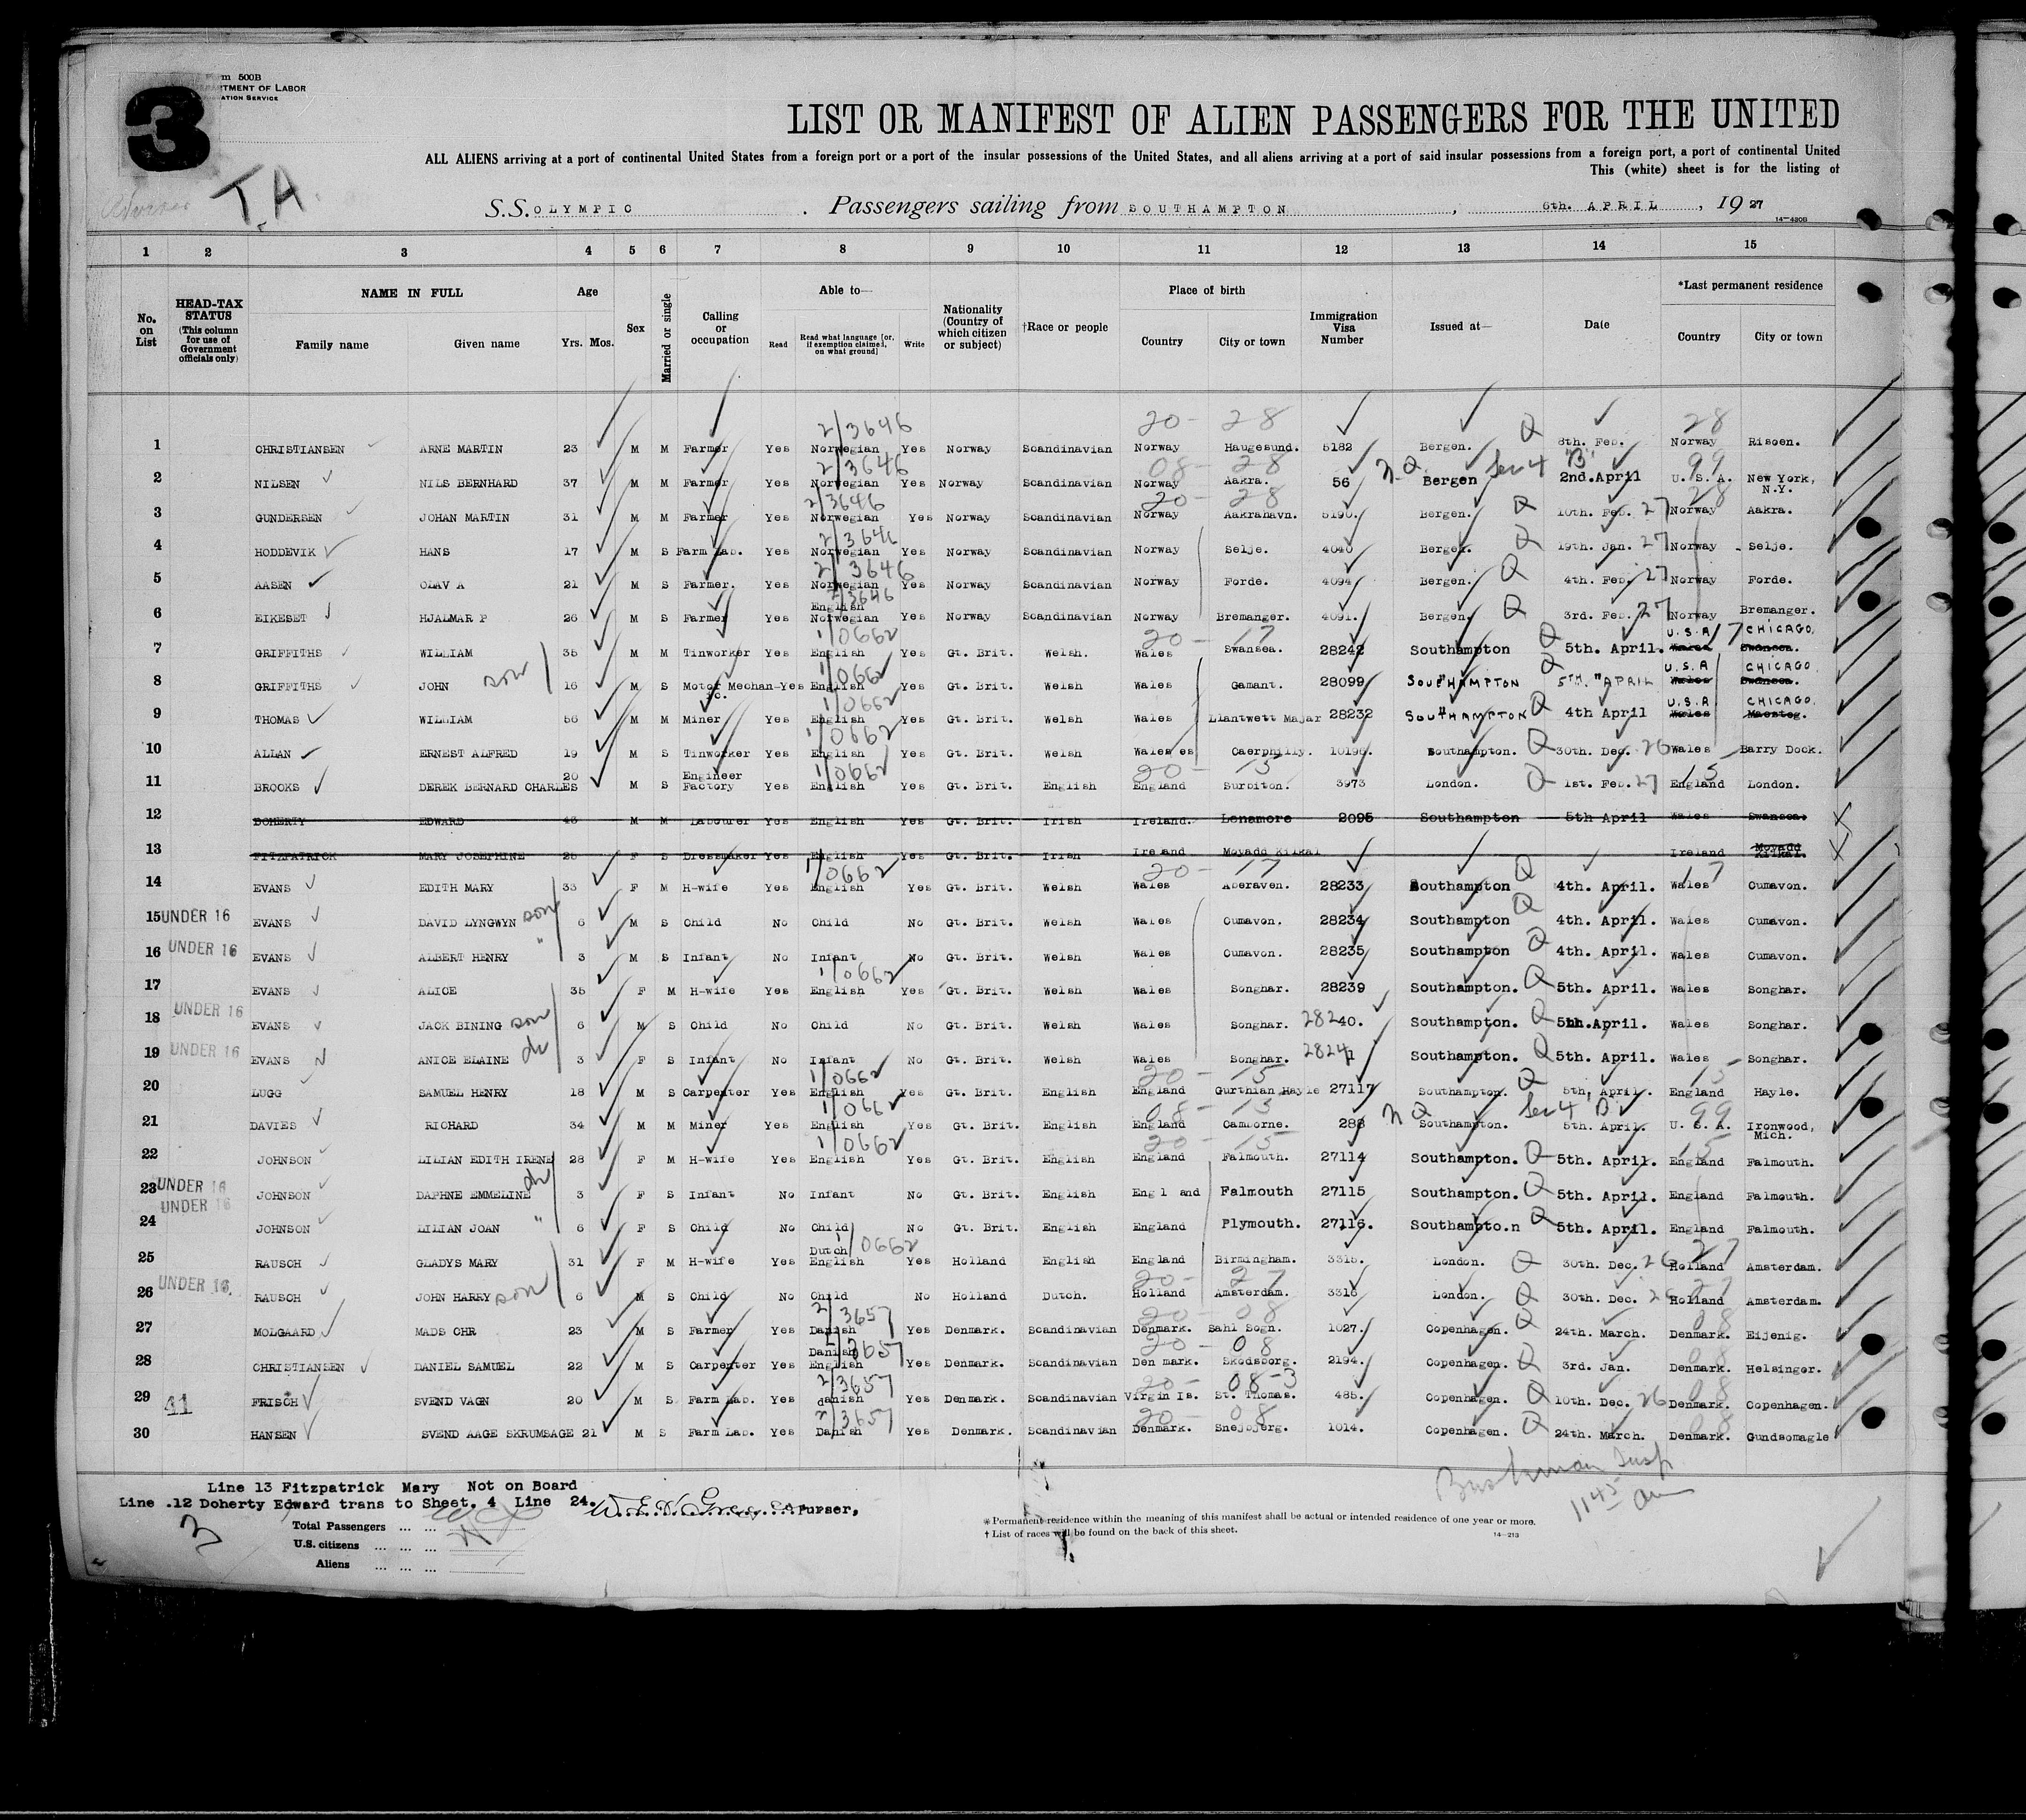 3
Form 500B
DEPARTMENT OF LABOR
IMMIGRATION SERVICE
T.A.
LIST OR MANIFEST OF ALIEN PASSENGERS FOR THE UNITED
ALL ALIENS arriving at a port of continental United States from a foreign port or a port of the insular possessions of the United States, and all aliens arriving at a port of said insular possessions from a foreign port, a port of continental United
This (white) sheet is for the listing of
S.S. OLYMPIC . Passengers sailing from SOUTHAMPTON , 6th. APRIL , 19 27
14—430B
1 2 3 4 5 6 7 8 9 10 11 12 13 14 15
No. on List
HEAD-TAX STATUS (This column for use of Government officials only)
NAME IN FULL Family name Given name
Age Yrs. Mos.
Sex
Married or single
Calling or occupation
Able to— Read Read what language [or, if exemption claimed, on what ground] Write
Nationality (Country of which citizen or subject)
†Race or people
Place of birth Country City or town
Immigration Visa Number
Issued at—
Date
*Last permanent residence Country City or town
2/3646 20- 28 28
1 CHRISTIANSEN ARNE MARTIN 23 M M Farmer Yes Norwegian Yes Norway Scandinavian Norway Haugesund. 5182 Bergen. Q 8th. Feb. Norway Risoen.
2/3646 08- 28 99
2 NILSEN NILS BERNHARD 37 M M Farmer Yes Norwegian Yes Norway Scandinavian Norway Aakra. 56 n Q. Bergen Sec 4 "B" 2nd.April U. S. A. New York, N.Y.
2/3646 20- 28 28
3 GUNDERSEN JOHAN MARTIN 31 M M Farmer Yes Norwegian Yes Norway Scandinavian Norway Aakrahavn. 5190. Bergen. Q 10th. Feb. 27 Norway Aakra.
2/3646
4 HODDEVIK HANS 17 M S Farm Lab. Yes Norwegian Yes Norway Scandinavian Norway Selje. 4040 Bergen. Q 19th. Jan. 27 Norway Selje.
2/3646
5 AASEN OLAV A 21 M S Farmer. Yes Norwegian Yes Norway Scandinavian Norway Forde. 4094 Bergen. Q 4th. Feb. 27 Norway Forde.
2/3646
6 EIKESET HJALMAR P 26 M S Farmer Yes English Norwegian Yes Norway Scandinavian Norway Bremanger. 4091. Bergen. Q 3rd. Feb. 27 Norway Bremanger.
1/0662 20- 17 U.S.A 17 CHICAGO.
7 GRIFFITHS WILLIAM 35 M M Tinworker Yes English Yes Gt. Brit. Welsh. Wales Swansea. 28242 Southampton Q 5th. April. Wales Swansea.
1/0662 U.S.A CHICAGO.
8 GRIFFITHS JOHN son 16 M S Motor Mechan-ic. Yes English Yes Gt. Brit. Welsh Wales Gamant. 28099 SOUTHAMPTON Q 5TH. APRIL Wales Swansea.
1/0662 U.S.A CHICAGO.
9 THOMAS WILLIAM 56 M M Miner Yes English Yes Gt. Brit. Welsh Wales Llantwett Majar 28232 SOUTHAMPTON Q 4th April Wales Maesteg.
1/0662
10 ALLAN ERNEST ALFRED 19 M S Tinworker Yes English Yes Gt. Brit. Welsh Wales es Caerphilly. 10196. Southampton. Q 30th. Dec. 26 Wales Barry Dock.
1/0662 20- 15 15
11 BROOKS DEREK BERNARD CHARLES 20 M S Engineer Factory Yes English Yes Gt. Brit. English England Surbiton. 3973 London. Q 1st. Feb. 27 England London.
12 DOHERTY EDWARD 43 M M Labourer Yes English Yes Gt. Brit. Irish Ireland. Lenamore 2095 Southampton 5th April Wales Swansea.
13 FITZPATRICK MARY JOSEPHINE 26 F S Dressmaker Yes English Yes Gt. Brit. Irish Ireland Moyadd Kilkal Ireland Moyadd Kilkal.
1/0662 20- 17 17
14 EVANS EDITH MARY 33 F M H-wife Yes English Yes Gt. Brit. Welsh Wales Aberaven. 28233 Southampton Q 4th. April. Wales Cumavon.
15 UNDER 16 EVANS DAVID LYNGWYN son 6 M S Child No Child No Gt. Brit. Welsh Wales Cumavon. 28234 Southampton Q 4th. April. Wales Cumavon.
16 UNDER 16 EVANS ALBERT HENRY " 3 M S Infant No Infant No Gt. Brit. Welsh Wales Cumavon. 28235 Southampton Q 4th. April. Wales Cumavon.
1/0662
17 EVANS ALICE 35 F M H-wife Yes English Yes Gt. Brit. Welsh Wales Songhar. 28239 Southampton. Q 5th. April. Wales Songhar.
18 UNDER 16 EVANS JACK BINING son 6 M S Child No Child No Gt. Brit. Welsh Wales Songhar. 28240. Southampton. Q 5th.April. Wales Songhar.
19 UNDER 16 EVANS ANICE ELAINE da 3 F S Infant No Infant No Gt. Brit. Welsh Wales Songhar. 28241 Southampton. Q 5th. April. Wales Songhar.
1/0662 20- 15 15
20 LUGG SAMUEL HENRY 18 M S Carpenter Yes English Yes Gt. Brit. English England Gurthian Hayle 27117 Southampton. Q 5th, April. England Hayle.
1/0662 08- 15 99
21 DAVIES RICHARD 34 M M Miner Yes English Yes Gt. Brit. English England Camborne. 288 n Q Southampton. Sec 4 B. 5th. April. U. S. A. Ironwood, Mich.
1/0662 20- 15 15
22 JOHNSON LILIAN EDITH IRENE 28 F M H-wife Yes English Yes Gt. Brit. English England Falmouth. 27114 Southampton. Q 5th. April. England Falmouth.
23 UNDER 16 JOHNSON DAPHNE EMMELINE da 3 F S Infant No Infant No Gt. Brit. English Engl and Falmouth 27115 Southampton. Q 5th. April. England Falmouth.
24 UNDER 16 JOHNSON LILIAN JOAN " 6 F S Child No Child No Gt. Brit. English England Plymouth. 27116. Southampto.n Q 5th. April. England Falmouth.
1/0662 27
25 RAUSCH GLADYS MARY 31 F M H-wife Yes Dutch English Yes Holland English England Birmingham. 3315. London. Q 30th. Dec. 26 Holland Amsterdam.
20- 27 27
26 UNDER 16. RAUSCH JOHN HARRY son 6 M S Child No Child No Holland Dutch. Holland Amsterdam. 3316 London. Q 30th. Dec. 26 Holland Amsterdam.
2/3657 20- 08 08
27 MOLGAARD MADS CHR 23 M S Farmer Yes Danish Yes Denmark. Scandinavian Denmark. Sahl Sogn. 1027. Copenhagen. Q 24th. March. Denmark. Eijenig.
2/3657 20- 08 08
28 CHRISTIANSEN DANIEL SAMUEL 22 M S Carpenter Yes Danish English Yes Denmark. Scandinavian Den mark. Skodsborg. 2194. Copenhagen. Q 3rd. Jan. Denmark. Helsingor.
2/3657 20- 08-3 08
29 41 FRISCH SVEND VAGN 20 M S Farm Lab. Yes danish Yes Denmark. Scandinavian Virgin Is. St. Thomas. 485. Copenhagen. Q 10th. Dec. 26 Denmark. Copenhagen.
2/3657 20- 08 08
30 HANSEN SVEND AAGE SKRUMSAGE 21 M S Farm Lab. Yes Danish Yes Denmark. Scandinavian Denmark. Snejbjerg. 1014. Copenhagen. Q 24th. March. Denmark. Gundsomagle
Line 13 Fitzpatrick Mary Not on Board
Line .12 Doherty Edward trans to Sheet. 4 Line 24.
Purser,
3
Total Passengers ... ...
U.S. citizens ... ... ...
Aliens ... ... ...
Insp
1145 am
* Permanent residence within the meaning of this manifest shall be actual or intended residence of one year or more.
† List of races will be found on the back of this sheet.
14—213